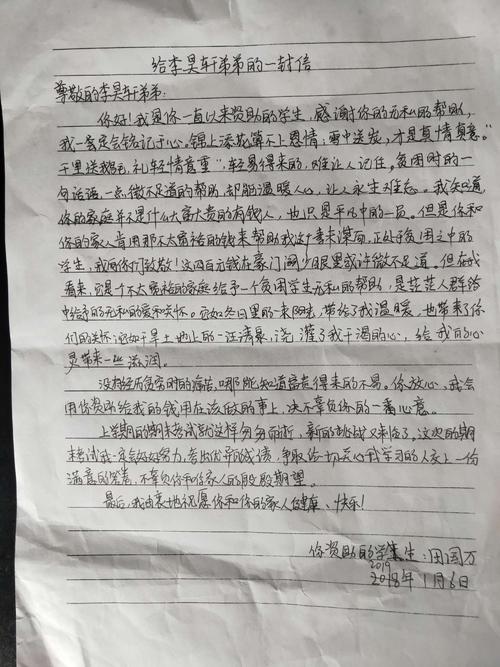 给李昊轩弟弟的一封信
尊敬的李昊轩弟弟:
你好!我是你一直以来资助的学生,感谢你的无私的帮助,
我一定会铭记于心,锦上添花算不上恩情,雪中送炭,才是真情真意。
“千里送鹅毛,礼轻情意重”,轻易得来的,难让人记住,贫困时的一
句话语,一点微不足道的帮助,却能温暖人心,让人永生难忘。我知道
你的家庭并不是什么大富大贵的有钱人,也只是平凡中的一员。但是你和
你的家人肯用那不太富裕的钱来帮助我这个素未谋面,正处于贫困之中的
学生,我向你们致敬!这四百元钱在豪门阔少眼里或许微不足道。但在我
看来,它是一个不太富裕的家庭给予一个贫困学生无私的帮助,是茫茫人群给
中给予的无私的爱和关怀。它如冬日里的一束阳光,带给了我温暖,也带来了你
们的关怀;它如干旱土地上的一汪清泉,浇灌了我干渴的心,给我的心
灵带来一些滋润。
没有经历贫穷时的痛苦,哪能知道富贵得来的不易。你放心,我会
用你资助给我的钱用在该做的事上,决不辜负你的一番心意。
上学期的期末考试就这样匆匆而逝,新的挑战又来临了。这次的期
末考试我一定会好好努力,考出优异的成绩,争取给一切关心我学习的人交上一份
满意的答卷,不辜负你和你家人的殷殷期望。
最后,我由衷地祝愿你和你的家人健康、快乐!
你资助的学生:田国万
2019
2018年1月6日